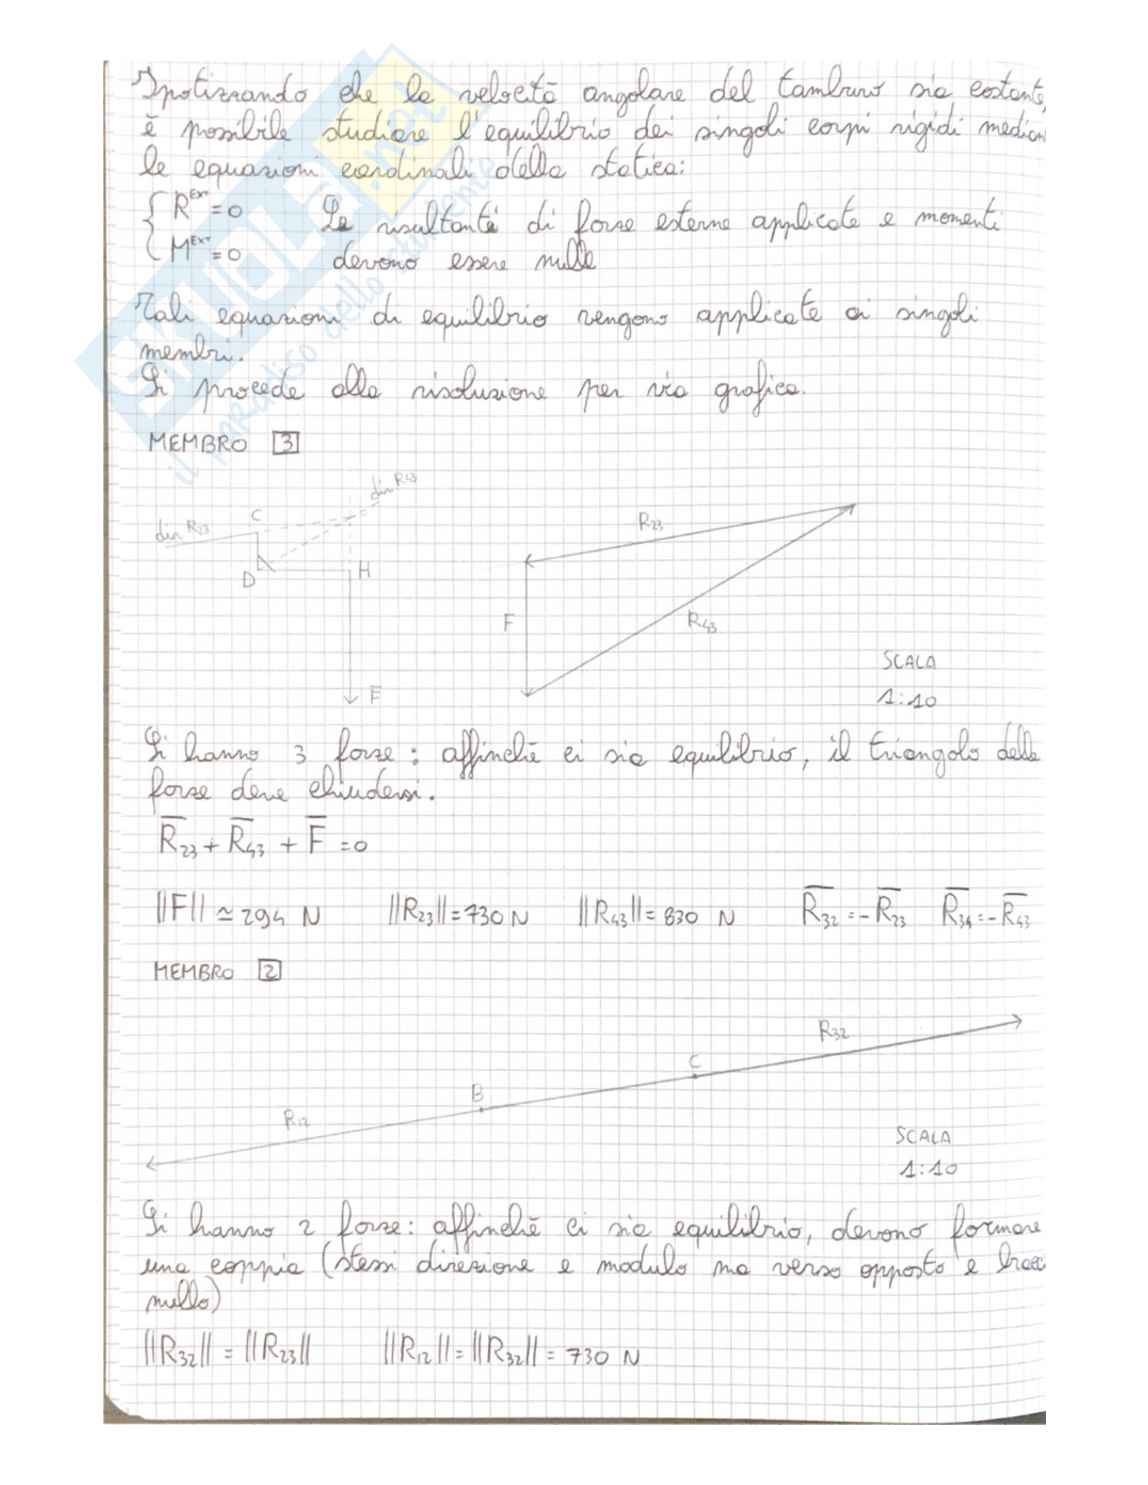 Ipotizzando che la velocità angolare del tamburo sia costante,
è possibile studiare l'equilibrio dei singoli corpi rigidi median
le equazioni cardinali della statica:
{ R^Ext = 0 Le risultanti di forze esterne applicate e momenti
{ M^Ext = 0 devono essere nulle
Tali equazioni di equilibrio vengono applicate ai singoli
membri.
Si procede alla risoluzione per via grafica.
MEMBRO 3
dir R43
dir R23
C
D
H
F
R23
F
R43
SCALA
1:10
Si hanno 3 forze: affinchè ci sia equilibrio, il triangolo delle
forze deve chiudersi.
R̅23 + R̅43 + F̅ = 0
||F|| ≃ 294 N ||R23|| = 730 N ||R43|| = 830 N R̅32 = -R̅23 R̅34 = -R̅43
MEMBRO 2
R32
C
B
R12
SCALA
1:10
Si hanno 2 forze: affinchè ci sia equilibrio, devono formare
una coppia (stessi direzione e modulo ma verso opposto e bracc
nullo)
||R32|| = ||R23|| ||R12|| = ||R32|| = 730 N
SKUOLA.net
il paradiso dello studente